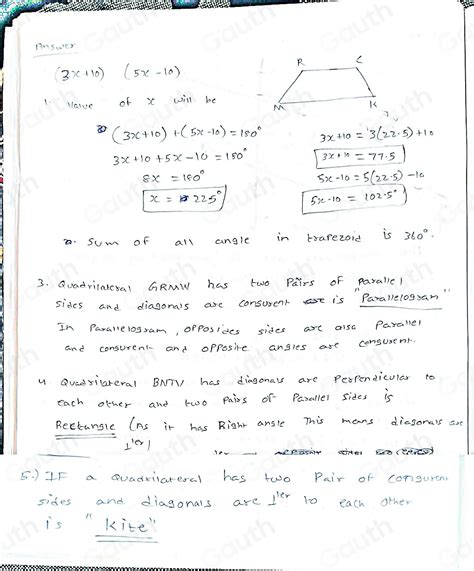 Answer
(3x+10) (5x-10)
R C
M K
1. Value of x will be
(3x+10)+(5x-10)=180°
3x+10+5x-10=180°
8x = 180°
x = 22.5°
3x+10 = 3(22.5)+10
3x+10 = 77.5
5x-10 = 5(22.5)-10
5x-10 = 102.5°
2. Sum of all angle in trapezoid is 360°.
3. Quadrilateral GRMW has two Pairs of parallel
sides and diagonals are consurent is "Parallelogram"
In Parallelogram, opposides sides are also Parallel
and consurent and opposite angles are consurent.
4. Quadrilateral BNTV has diagonals are Perpendicular to
each other and two Pairs of Parallel sides is
Rectangle (As it has Right angle This means diagonals are
⊥ler)
5.) IF a quadrilateral has two Pair of congurent
sides and diagonals are ⊥ler to each other
is "Kite"